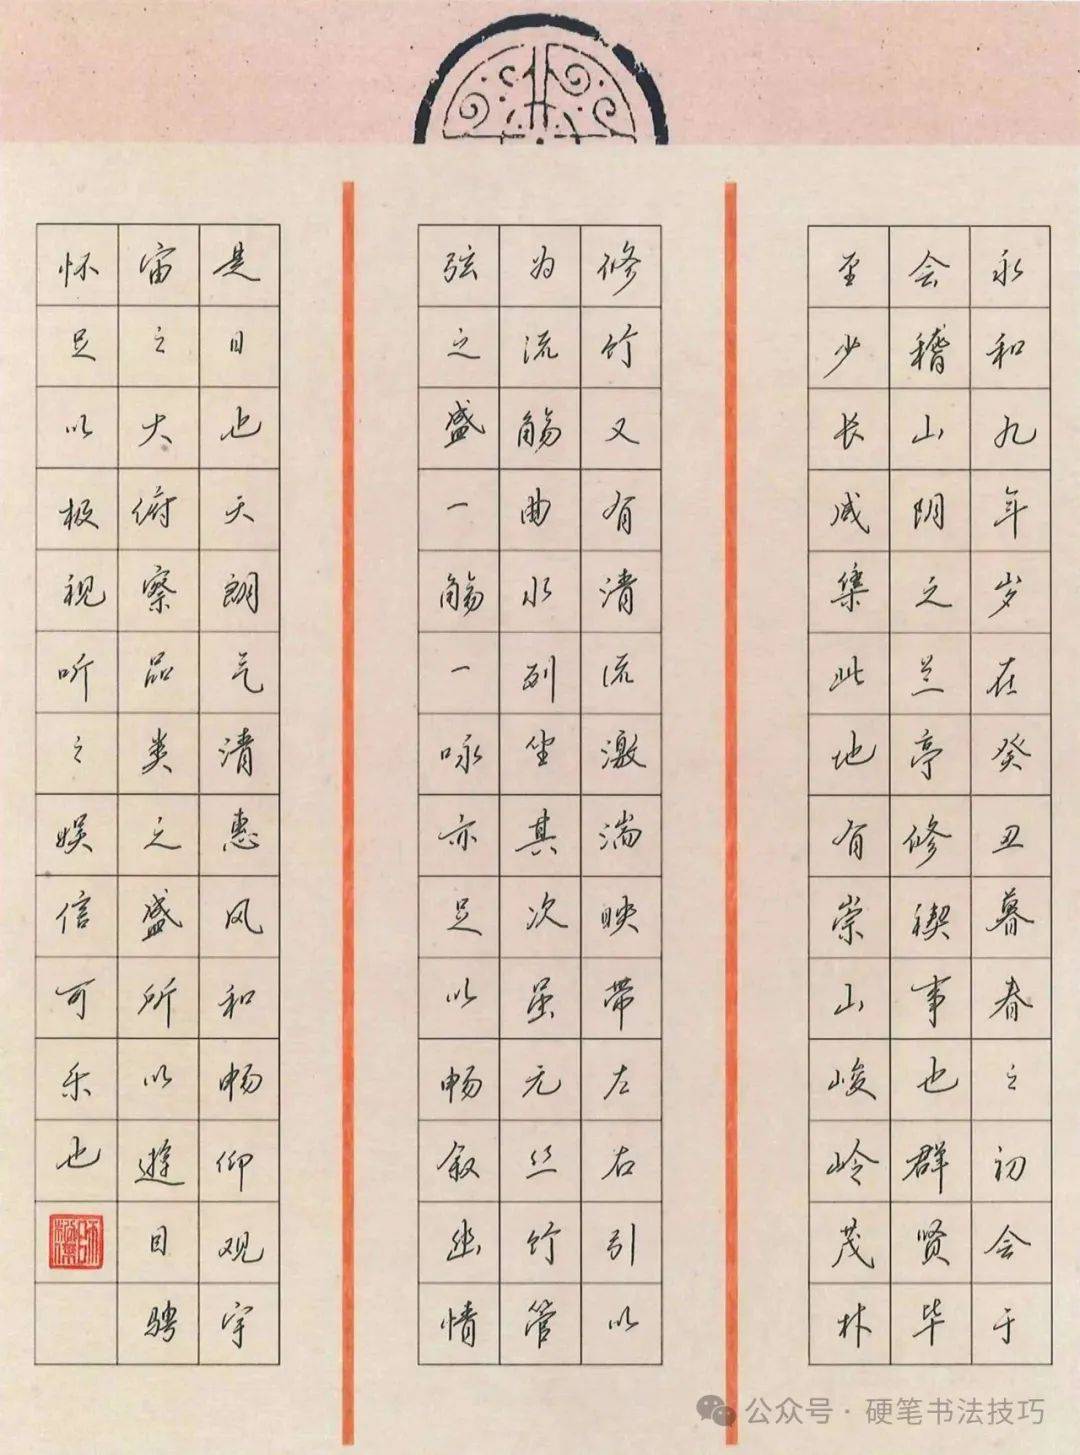 永和九年岁在癸丑暮春之初会于
会稽山阴之兰亭修禊事也群贤毕
至少长咸集此地有崇山峻岭茂林
修竹又有清流激湍映带左右引以
为流觞曲水列坐其次虽无丝竹管
弦之盛一觞一咏亦足以畅叙幽情
是日也天朗气清惠风和畅仰观宇
宙之大俯察品类之盛所以遊目骋
怀足以极视听之娱信可乐也
公众号·硬笔书法技巧